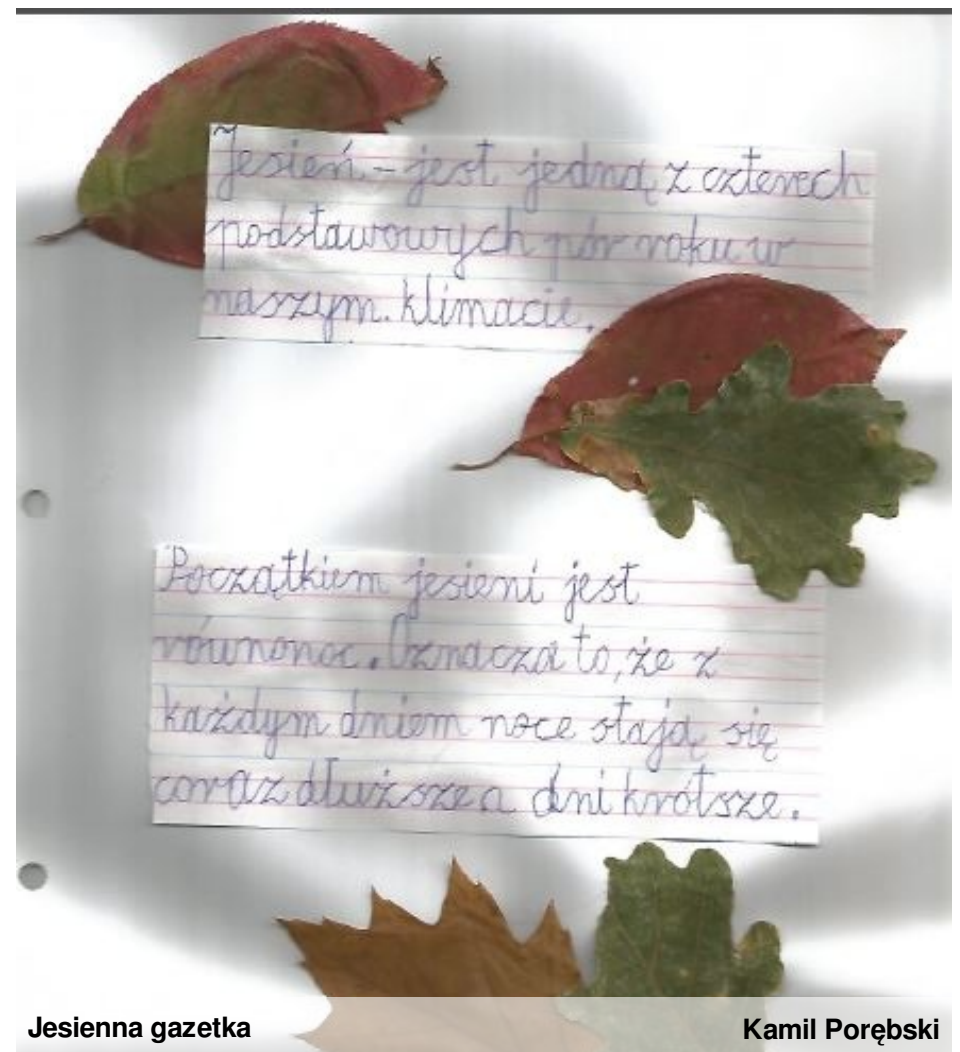 Jesień - jest jedną z czterech
podstawowych pór roku w
naszym klimacie.
Początkiem jesieni jest
równonoc. Oznacza to, że z
każdym dniem noce stają się
coraz dłuższe a dni krótsze.
Jesienna gazetka
Kamil Porębski